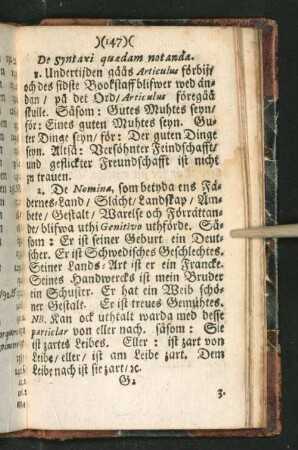 )(147)(
De Syntaxi quædam notanda.
1. Undertijden gåås Articulus förbijs
och des sidste Bookstaff blifwer wed än-
dan/ på det Ord/ Articulus föregåå
skulle. Såsom: Gutes Muhtes seyn/
för: Eines guten Muhtes seyn. Gu-
ter Dinge seyn/ för: Der guten Dinge
seyn. Alså: Versöhnter Feindschafft/
und geflickter Freundschafft ist nicht
zu trauen.
2. De Nomina, som betyda ens Fä-
dernes-Land/ Slächt/ Landskap/ Äm-
bete/ Gestalt/ Warelse och Förrättan-
de/ blifwa uthi Genitivo uthförde. Så-
som: Er ist seiner Geburt ein Deut-
scher. Er ist Schwedisches Geschlechtes.
Seiner Lands-Art ist er ein Francke.
Seines Handwercks ist mein Bruder
ein Schuster. Er hat ein Weib schö-
ner Gestalt. Er ist treues Gemühtes.
NB. Kan ock uthtalt warda med desse
particlar von eller nach. såsom: Sie
ist zartes Leibes. Eller: ist zart von
Leibe/ eller/ ist am Leibe zart. Dem
Leibe nach ist sie zart/ ꝛc.
G2
3.